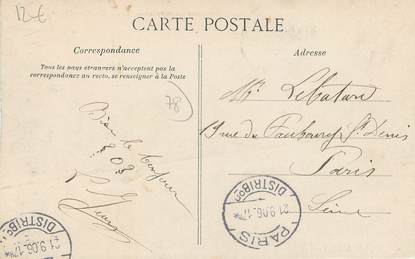 12-€
CARTE POSTALE
Correspondance
Tous les pays étrangers n'acceptent pas la
correspondance au recto, se renseigner à la Poste
78
Bien le bonjour
Adresse
Mr Lebature
19 rue du Faubourg St Denis
Paris
Seine
PARIS
21.9.06.17
DISTRIBon
DISTRIB
21.9.06.17